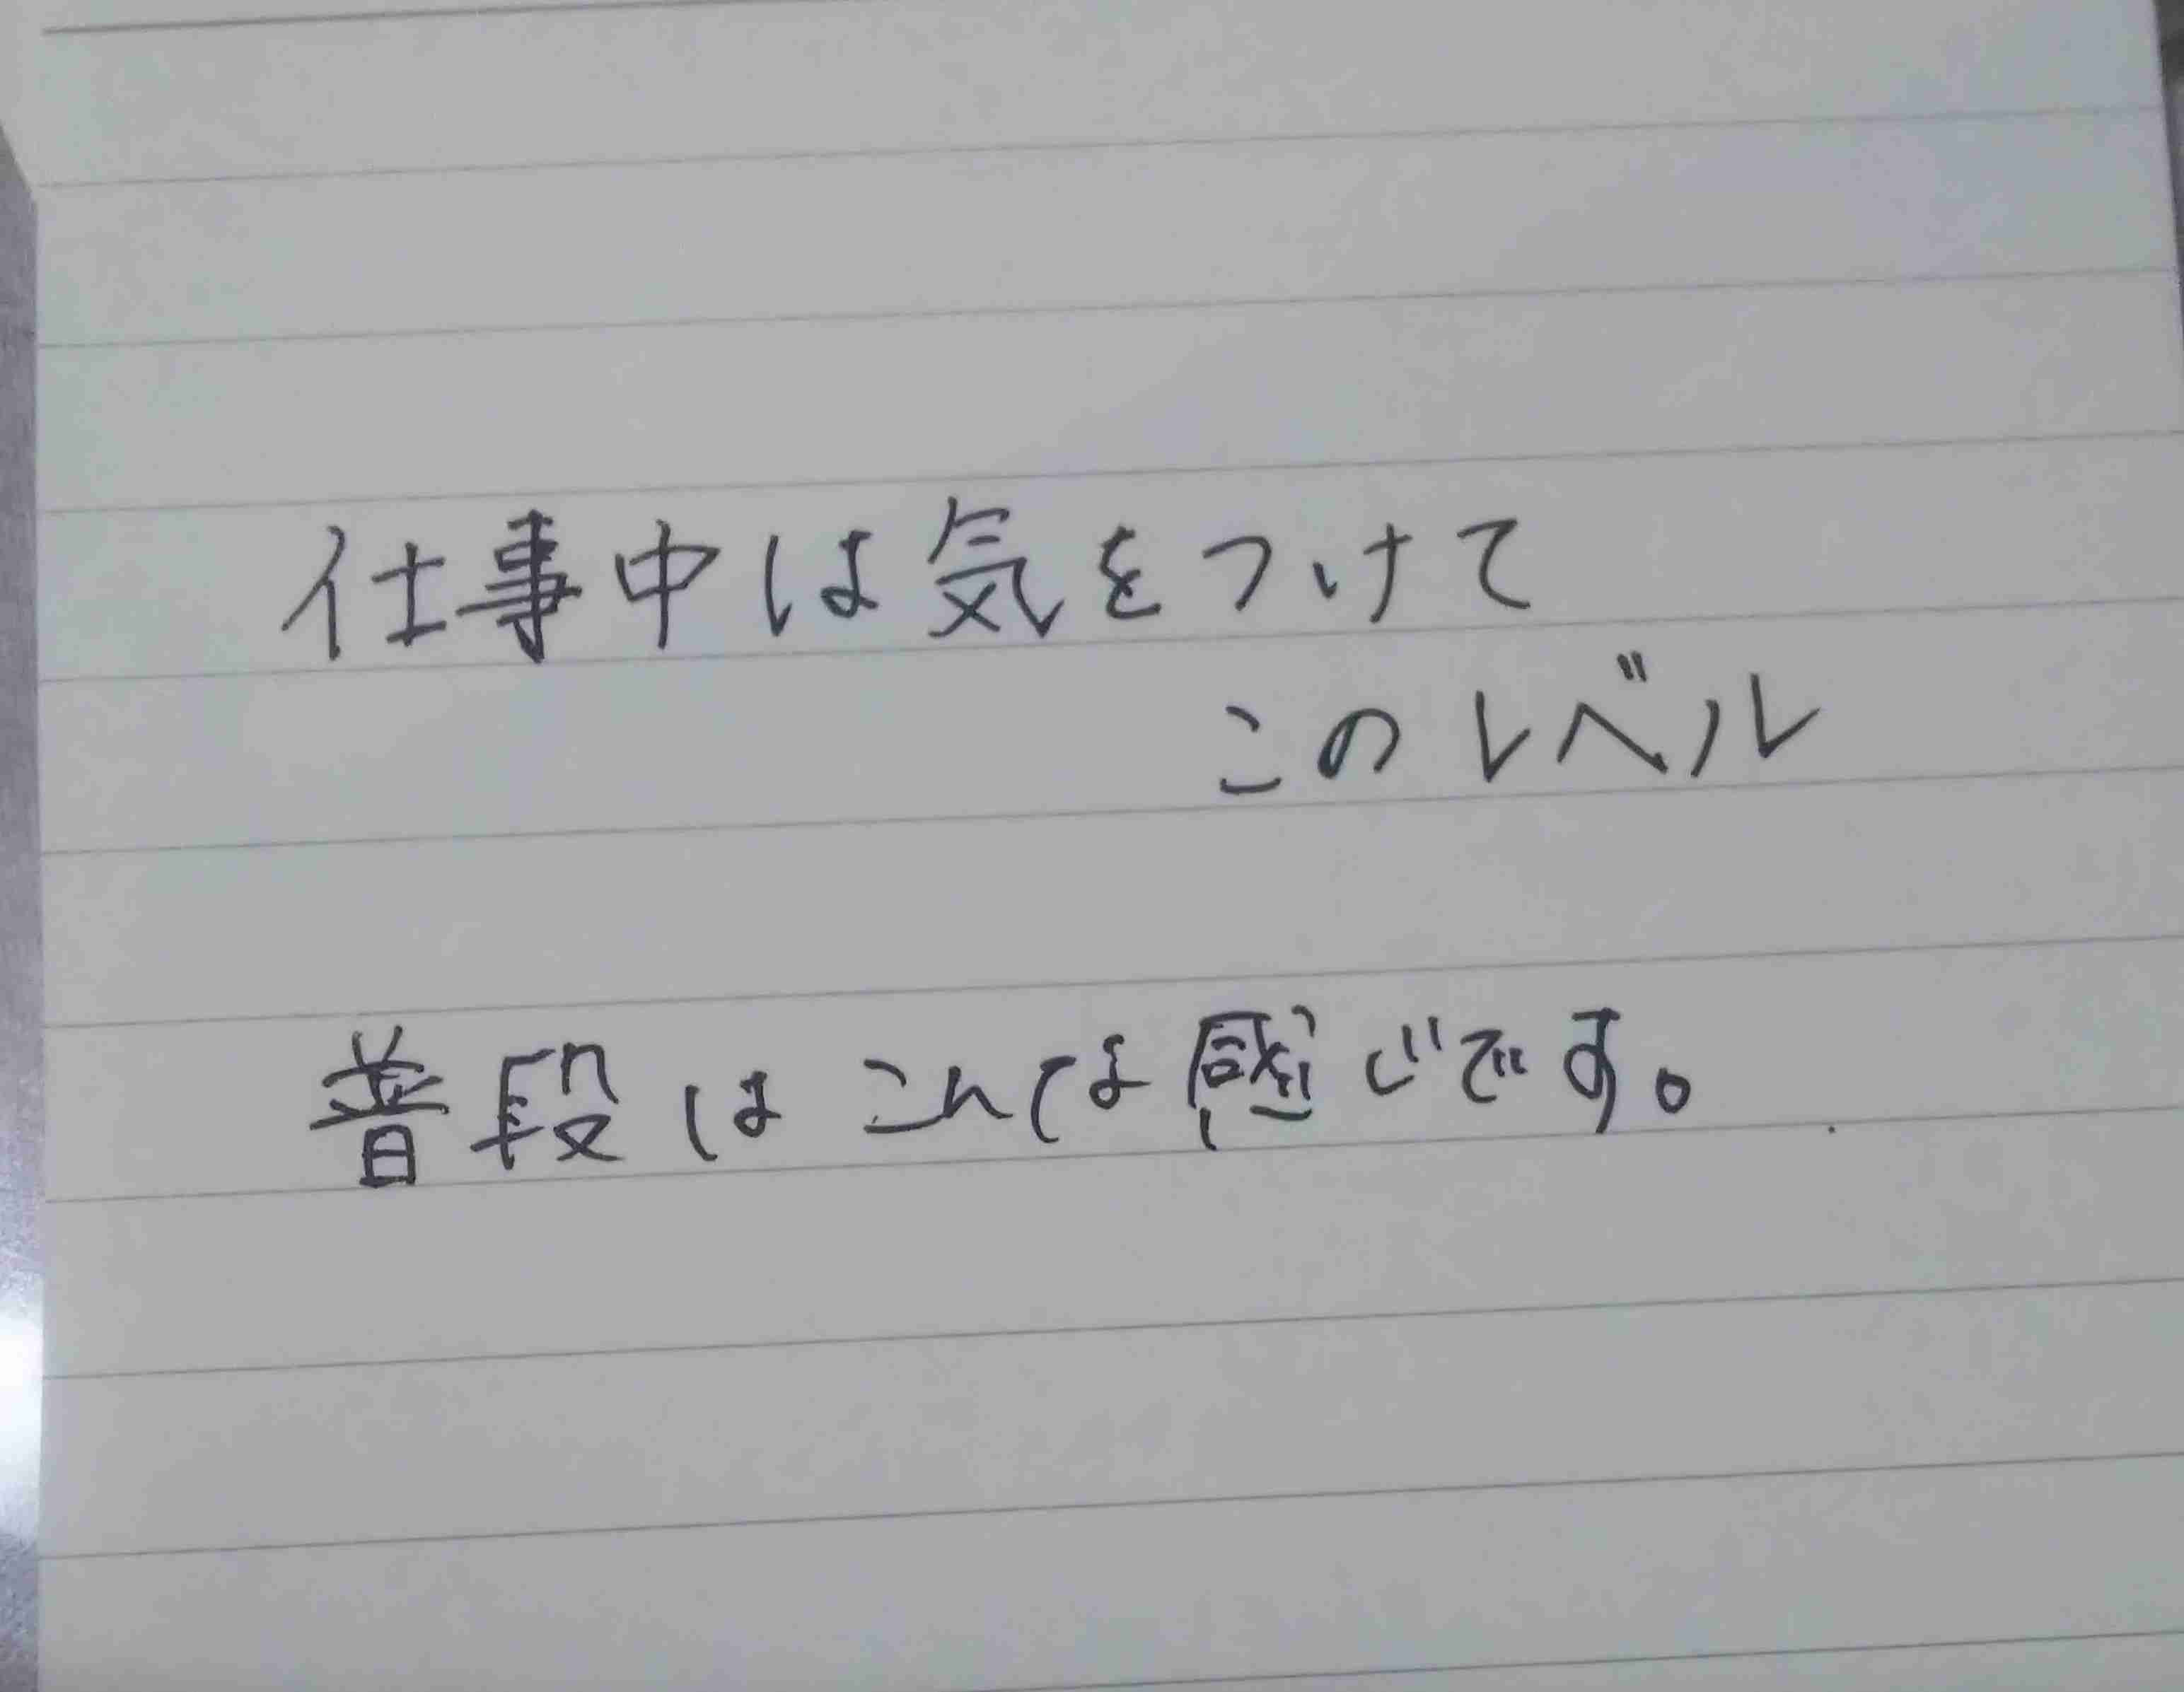 仕事中は気をつけて
このレベル
普段はこんな感じです。